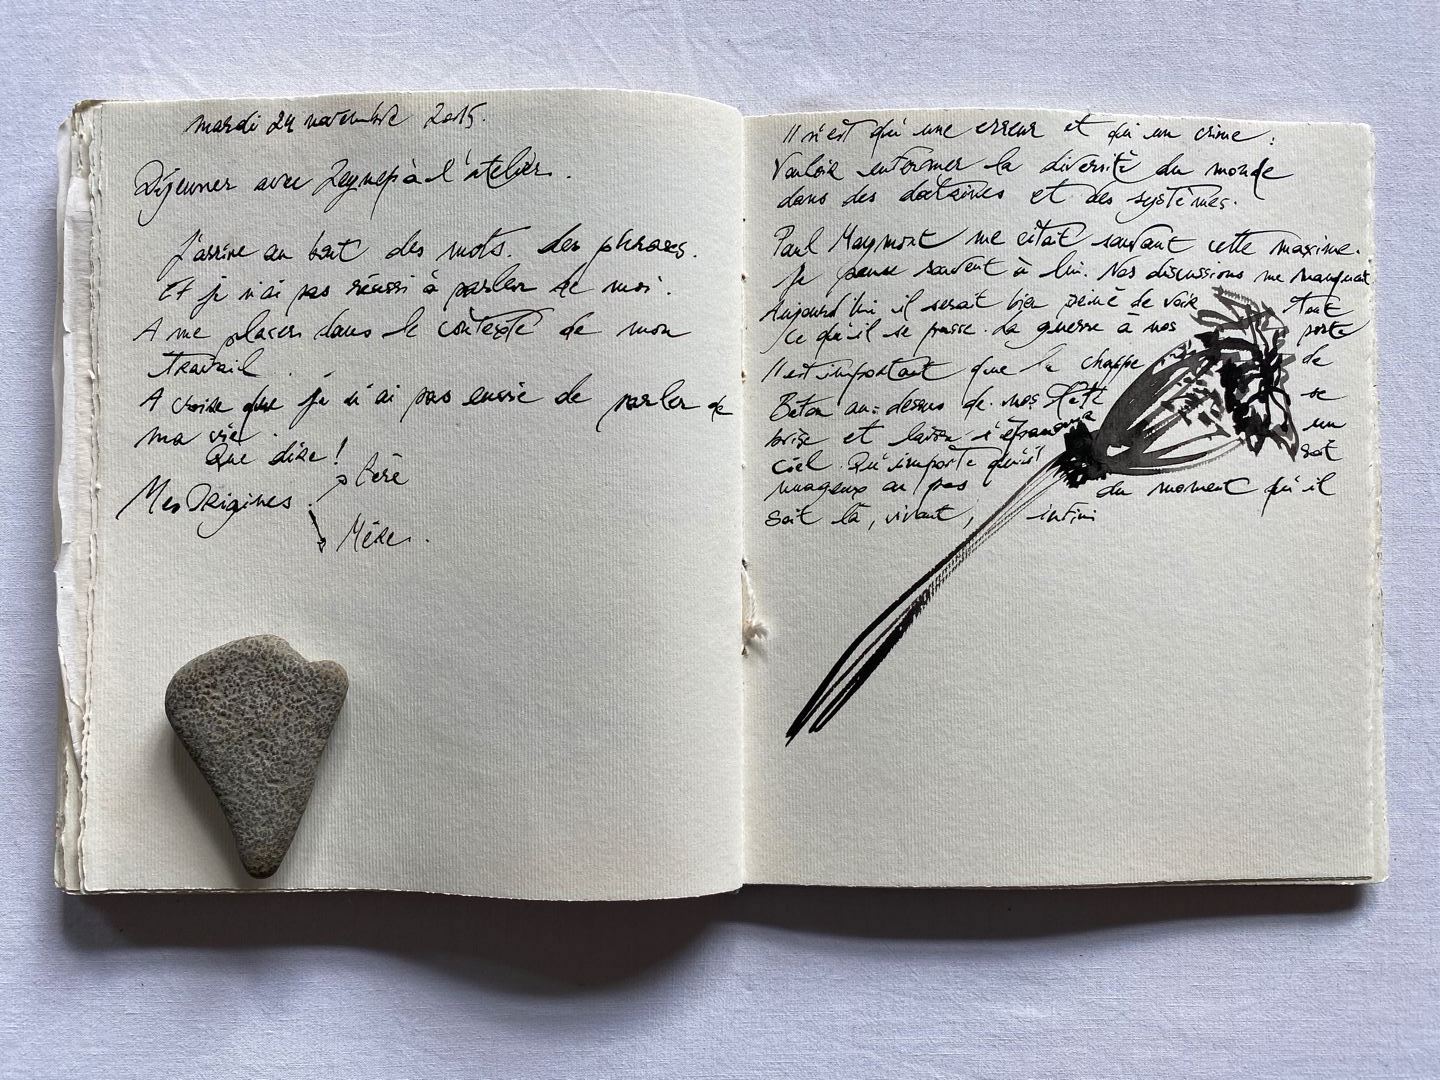 mardi 24 novembre 2015.
Déjeuner avec Zeynep à l'atelier.
J'arrive au bout des mots. des phrases.
Et je n'ai pas réussi à parler de moi.
A me placer dans le contexte de mon
travail.
A croire que je n'ai pas envie de parler de
ma vie.
Que dire !
Mes Origines.
Père
Mère.
Il n'est qu'une erreur et qu'un crime :
Vouloir enfermer la diversité du monde
dans des doctrines et des systèmes.
Paul Maymont me citait souvent cette maxime.
Je pense souvent à lui. Nos discussions me manquent
Aujourd'hui il serait bien peiné de voir tout
ce qu'il se passe. La guerre à nos porte
Il est important que la chappe de
Béton au-dessus de nos se
brise et laisse un
ciel. Qu'importe qu'il soit
nuageux ou pas du moment qu'il
soit là, vivant, infini